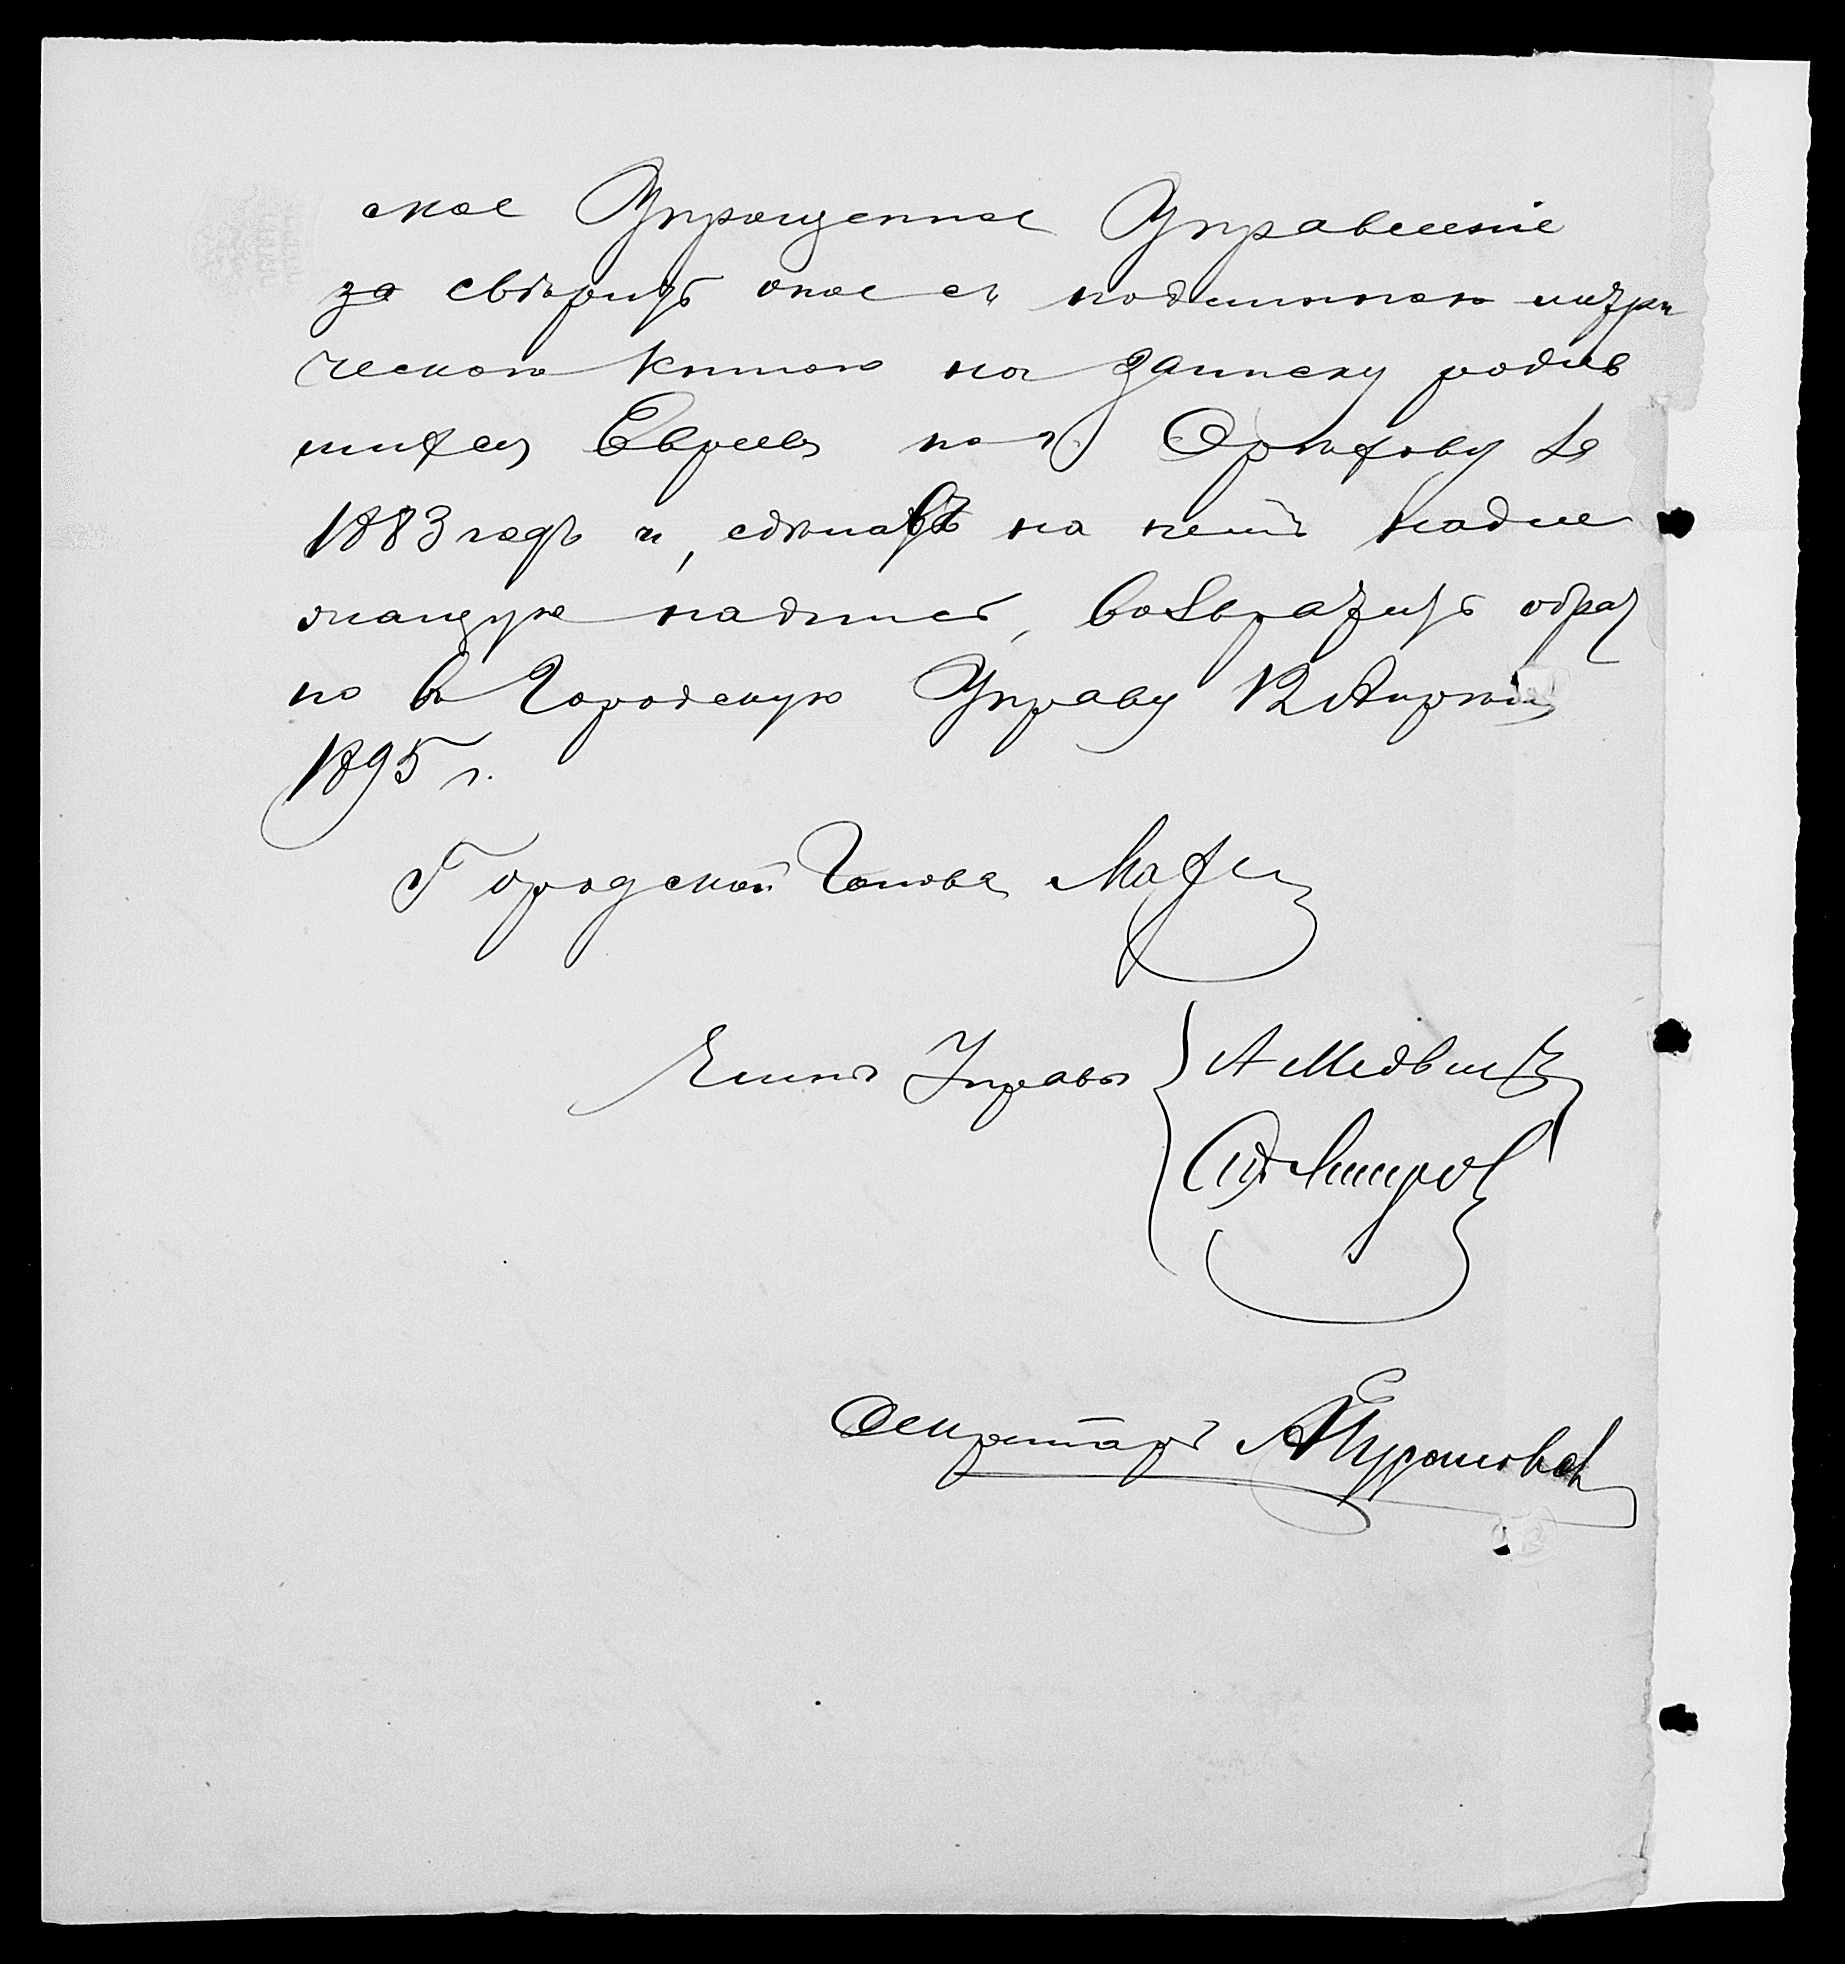 ское Упрощенное Управление
за сверить оное съ подлинною метри
ческою книгою на записку родив
шихся Евреевъ по г. Орехову за
1883 годъ и, сделавъ на немъ надле
жащую надпись, возвратить обрат
но въ Городскую Управу 12 Апреля
1895 г.
Городской Голова
Члены Управы А Медв
Секретарь А